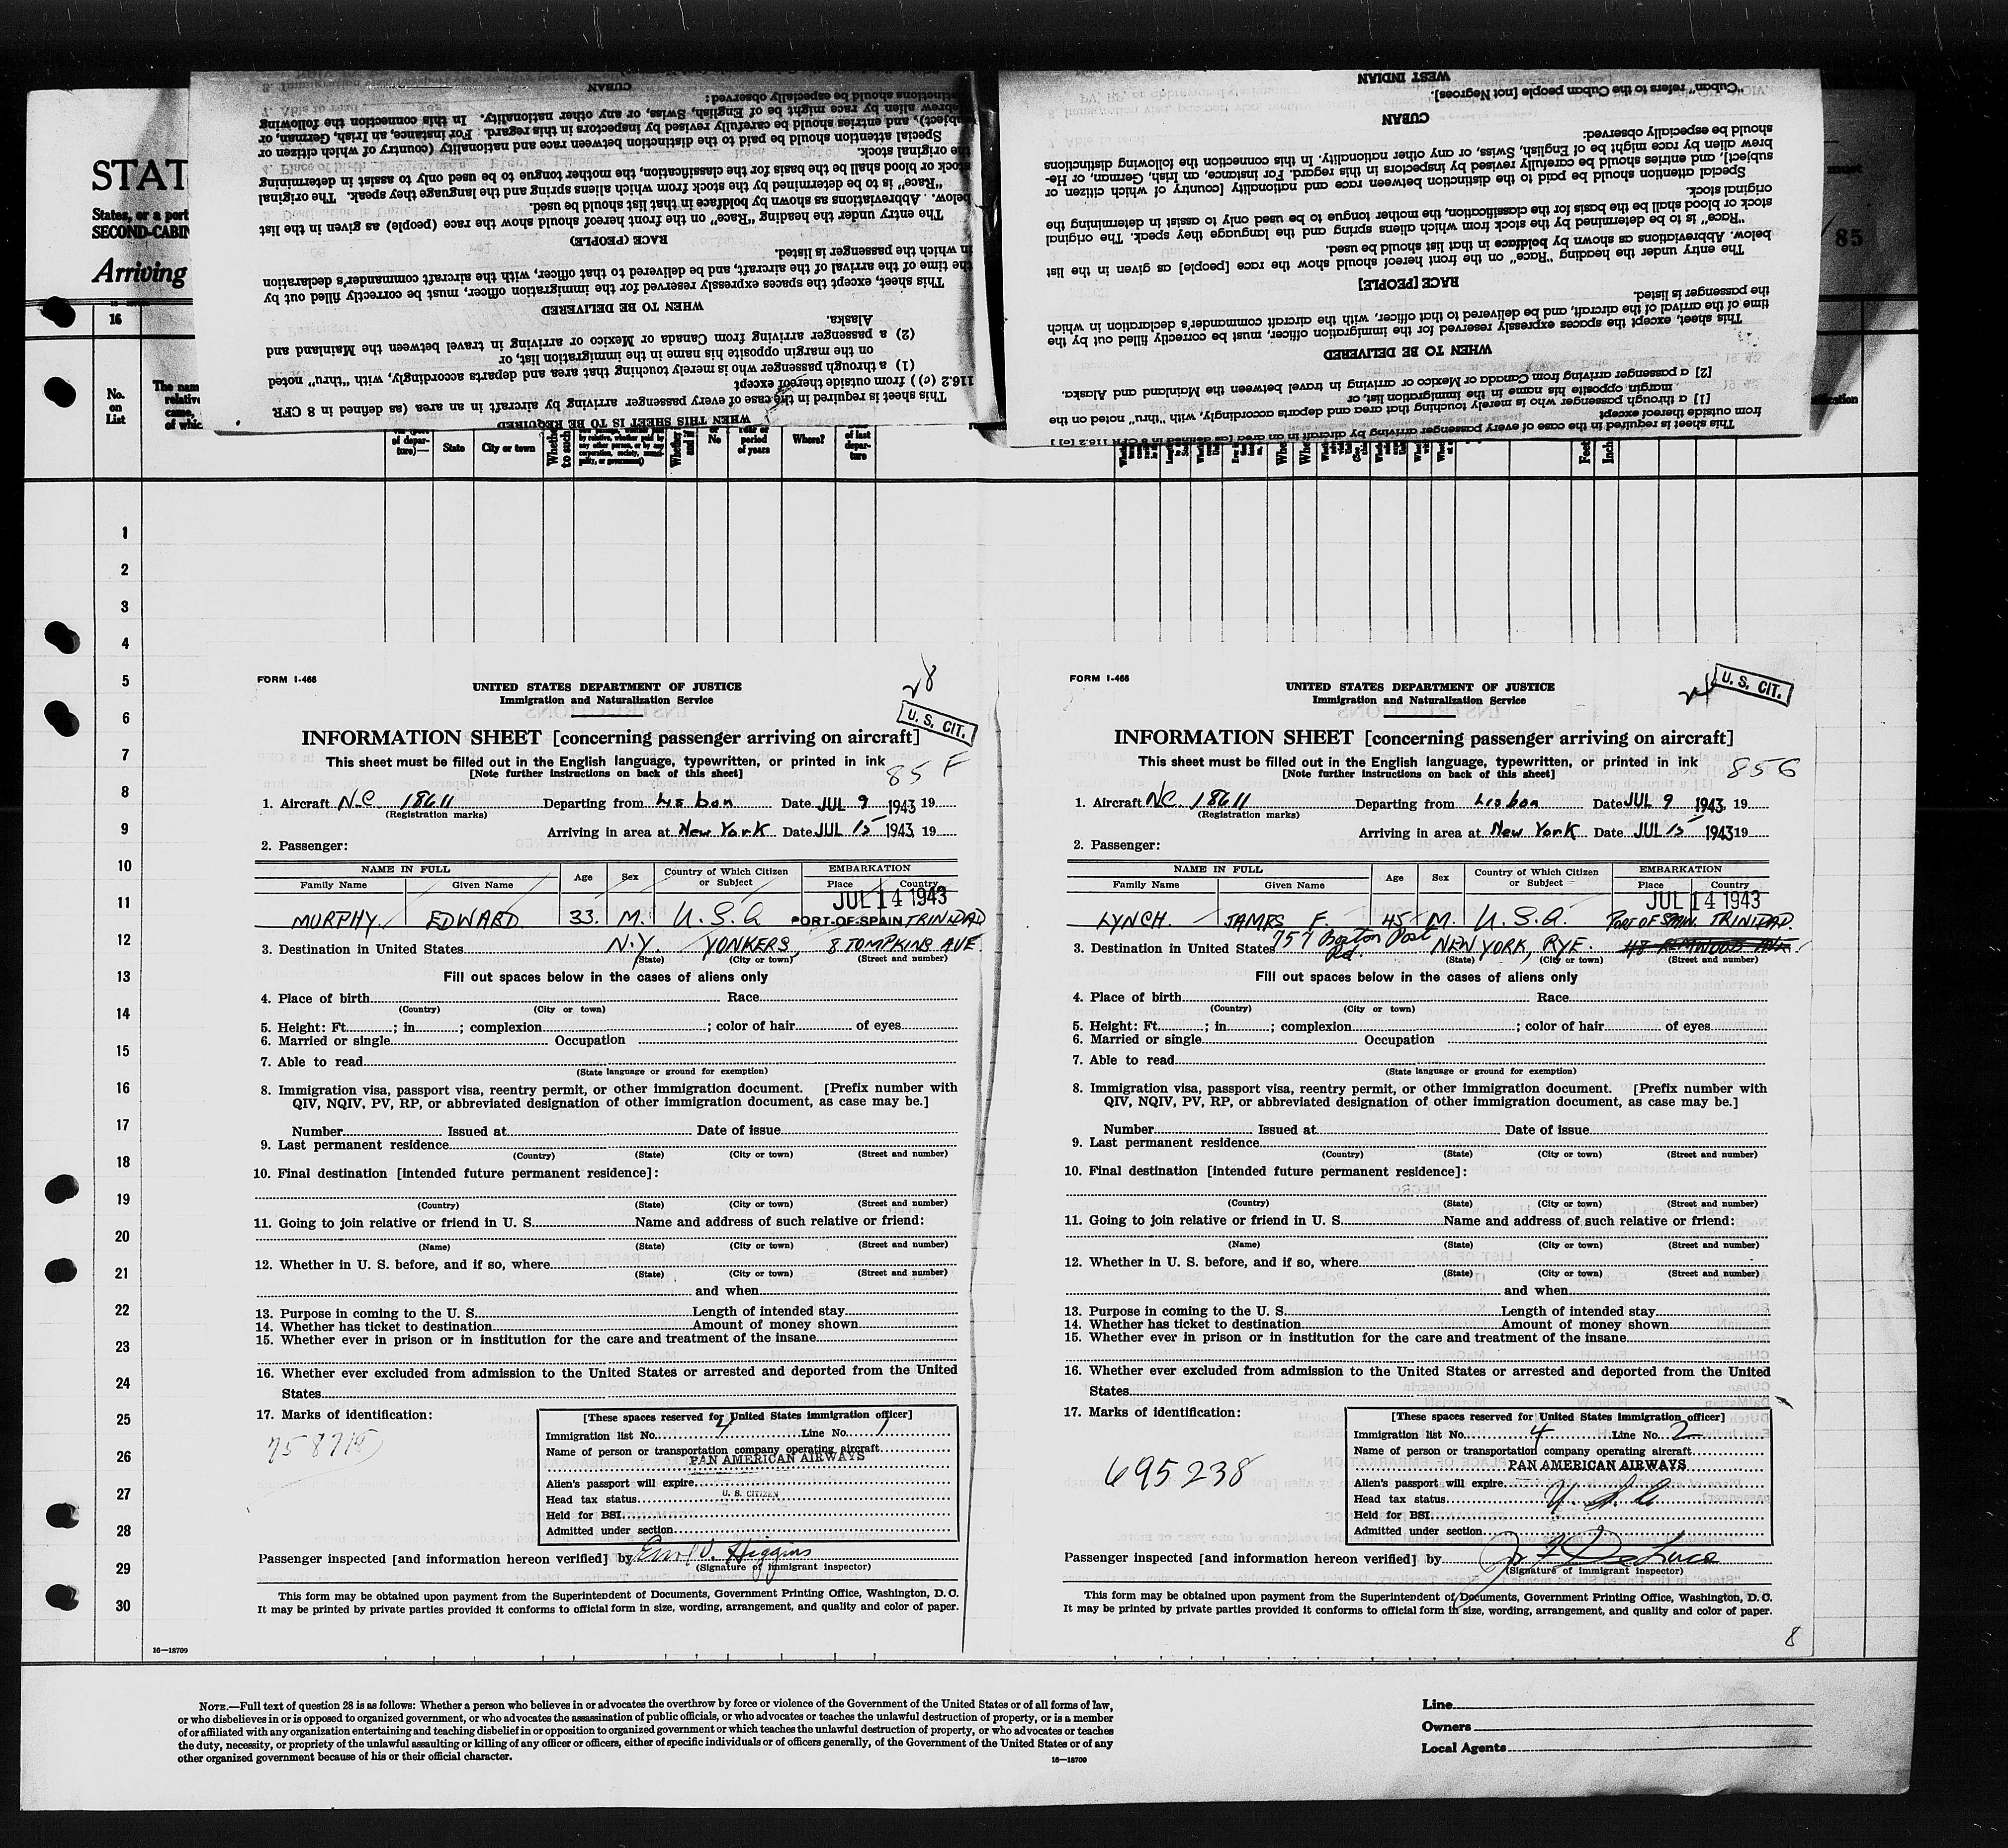 STAT
States, or a port
SECOND-CABIN
Arriving
16
No.
on
List
The nam
relativ
came,
of whic
85
CUBAN
distinctions should be especially observed:
Hebrew alien by race might be of English, Swiss, or any other nationality. In this connection the following
subject), and entries should be carefully revised by inspectors in this regard. For instance, an Irish, German, or
Special attention should be paid to the distinction between race and nationality (country of which citizen or
the original stock.
stock or blood shall be the basis for the classification, the mother tongue to be used only to assist in determining
"Race" is to be determined by the stock from which aliens spring and the language they speak. The original
below. Abbreviations as shown by boldface in that list should be used.
The entry under the heading "Race" on the front hereof should show the race (people) as given in the list
RACE (PEOPLE)
in which the passenger is listed.
the time of the arrival of the aircraft, and be delivered to that officer, with the aircraft commander's declaration
This sheet, except the spaces expressly reserved for the immigration officer, must be correctly filled out by
WHEN TO BE DELIVERED
Alaska.
(2) a passenger arriving from Canada or Mexico or arriving in travel between the Mainland and
on the margin opposite his name in the immigration list, or
(1) a through passenger who is merely touching that area and departs accordingly, with "thru" noted
116.2 (c)) from outside thereof except
This sheet is required in the case of every passenger arriving by aircraft in an area (as defined in 8 CFR
WHEN THIS SHEET IS TO BE REQUIRED
WEST INDIAN
"Cuban" refers to the Cuban people [not Negroes].
CUBAN
should be especially observed:
brew alien by race might be of English, Swiss, or any other nationality. In this connection the following distinctions
subject], and entries should be carefully revised by inspectors in this regard. For instance, an Irish, German, or He-
Special attention should be paid to the distinction between race and nationality [country of which citizen or
original stock.
stock or blood shall be the basis for the classification, the mother tongue to be used only to assist in determining the
"Race" is to be determined by the stock from which aliens spring and the language they speak. The original
below. Abbreviations as shown by boldface in that list should be used.
The entry under the heading "Race" on the front hereof should show the race [people] as given in the list
RACE [PEOPLE]
the passenger is listed.
time of the arrival of the aircraft, and be delivered to that officer, with the aircraft commander's declaration in which
This sheet, except the spaces expressly reserved for the immigration officer, must be correctly filled out by the
WHEN TO BE DELIVERED
[2] a passenger arriving from Canada or Mexico or arriving in travel between the Mainland and Alaska.
margin opposite his name in the immigration list, or
[1] a through passenger who is merely touching that area and departs accordingly, with "thru" noted on the
from outside thereof except
This sheet is required in the case of every passenger arriving by aircraft in an area [as defined in 8 CFR 116.2 [c] ]
of depar-
ture)—
State
City or town
Whethe
to such
by relative, whether paid by
any other person, or by any
corporation, society, munici-
pality, or government)
Whether
and if
No
Year or
period
of years
Where?
of last
depar-
ture
Feet
Inch
1
2
3
4
5
6
7
8
9
10
11
12
13
14
15
16
17
18
19
20
21
22
23
24
25
26
27
28
29
30
FORM I-466
28
UNITED STATES DEPARTMENT OF JUSTICE
Immigration and Naturalization Service
U. S. CIT.
INFORMATION SHEET [concerning passenger arriving on aircraft]
This sheet must be filled out in the English language, typewritten, or printed in ink
[Note further instructions on back of this sheet]
85 F
1. Aircraft NC 18611 Departing from Lisbon Date JUL 9 1943 19
(Registration marks)
Arriving in area at New York Date JUL 15 1943 19
2. Passenger:
NAME IN FULL Age Sex Country of Which Citizen or Subject EMBARKATION
Family Name Given Name Place Country
JUL 14 1943
MURPHY EDWARD 33. M. U.S.A PORT-OF-SPAIN TRINIDAD
3. Destination in United States N.Y. YONKERS, 8 TOMPKINS AVE.
(State) (City or town) (Street and number)
Fill out spaces below in the cases of aliens only
4. Place of birth Race
(Country) (City or town)
5. Height: Ft. ; in ; complexion ; color of hair of eyes
6. Married or single Occupation
7. Able to read
(State language or ground for exemption)
8. Immigration visa, passport visa, reentry permit, or other immigration document. [Prefix number with
QIV, NQIV, PV, RP, or abbreviated designation of other immigration document, as case may be.]
Number Issued at Date of issue
9. Last permanent residence
(Country) (State) (City or town) (Street and number)
10. Final destination [intended future permanent residence]:
(Country) (State) (City or town) (Street and number)
11. Going to join relative or friend in U. S. Name and address of such relative or friend:
(Name) (State) (City or town) (Street and number)
12. Whether in U. S. before, and if so, where
(State) (City or town) (Street and number)
and when
13. Purpose in coming to the U. S. Length of intended stay
14. Whether has ticket to destination Amount of money shown
15. Whether ever in prison or in institution for the care and treatment of the insane
16. Whether ever excluded from admission to the United States or arrested and deported from the United
States
17. Marks of identification:
758715
[These spaces reserved for United States immigration officer]
Immigration list No. 4 Line No. 1
Name of person or transportation company operating aircraft
PAN AMERICAN AIRWAYS
Alien's passport will expire
U. S. CITIZEN
Head tax status
Held for BSI
Admitted under section
Passenger inspected [and information hereon verified] by Earl V. Higgins
(Signature of immigrant inspector)
This form may be obtained upon payment from the Superintendent of Documents, Government Printing Office, Washington, D. C.
It may be printed by private parties provided it conforms to official form in size, wording, arrangement, and quality and color of paper.
16—18709
FORM I-466
UNITED STATES DEPARTMENT OF JUSTICE
Immigration and Naturalization Service
U. S. CIT.
INFORMATION SHEET [concerning passenger arriving on aircraft]
This sheet must be filled out in the English language, typewritten, or printed in ink
[Note further instructions on back of this sheet]
85G
1. Aircraft NC. 18611 Departing from Lisbon Date JUL 9 1943, 19
(Registration marks)
Arriving in area at New York Date JUL 15 1943 19
2. Passenger:
NAME IN FULL Age Sex Country of Which Citizen or Subject EMBARKATION
Family Name Given Name Place Country
JUL 14 1943
LYNCH. JAMES F. 45 M. U.S.A. PORT OF SPAIN. TRINIDAD.
3. Destination in United States 757 Boston Post Rd. NEW YORK, RYE. 48 ELMWOOD AVE.
(State) (City or town) (Street and number)
Fill out spaces below in the cases of aliens only
4. Place of birth Race
(Country) (City or town)
5. Height: Ft. ; in ; complexion ; color of hair of eyes
6. Married or single Occupation
7. Able to read
(State language or ground for exemption)
8. Immigration visa, passport visa, reentry permit, or other immigration document. [Prefix number with
QIV, NQIV, PV, RP, or abbreviated designation of other immigration document, as case may be.]
Number Issued at Date of issue
9. Last permanent residence
(Country) (State) (City or town) (Street and number)
10. Final destination [intended future permanent residence]:
(Country) (State) (City or town) (Street and number)
11. Going to join relative or friend in U. S. Name and address of such relative or friend:
(Name) (State) (City or town) (Street and number)
12. Whether in U. S. before, and if so, where
(State) (City or town) (Street and number)
and when
13. Purpose in coming to the U. S. Length of intended stay
14. Whether has ticket to destination Amount of money shown
15. Whether ever in prison or in institution for the care and treatment of the insane
16. Whether ever excluded from admission to the United States or arrested and deported from the United
States
17. Marks of identification:
695238
[These spaces reserved for United States immigration officer]
Immigration list No. 4 Line No. 2
Name of person or transportation company operating aircraft
PAN AMERICAN AIRWAYS
Alien's passport will expire
Head tax status
Held for BSI
Admitted under section
Passenger inspected [and information hereon verified] by
(Signature of immigrant inspector)
This form may be obtained upon payment from the Superintendent of Documents, Government Printing Office, Washington, D. C.
It may be printed by private parties provided it conforms to official form in size, wording, arrangement, and quality and color of paper.
8
NOTE.—Full text of question 28 is as follows: Whether a person who believes in or advocates the overthrow by force or violence of the Government of the United States or of all forms of law,
or who disbelieves in or is opposed to organized government, or who advocates the assassination of public officials, or who advocates or teaches the unlawful destruction of property, or is a member
of or affiliated with any organization entertaining and teaching disbelief in or opposition to organized government or which teaches the unlawful destruction of property, or who advocates or teaches
the duty, necessity, or propriety of the unlawful assaulting or killing of any officer or officers, either of specific individuals or of officers generally, of the Government of the United States or of any
other organized government because of his or their official character.
16—18709
Line
Owners
Local Agents